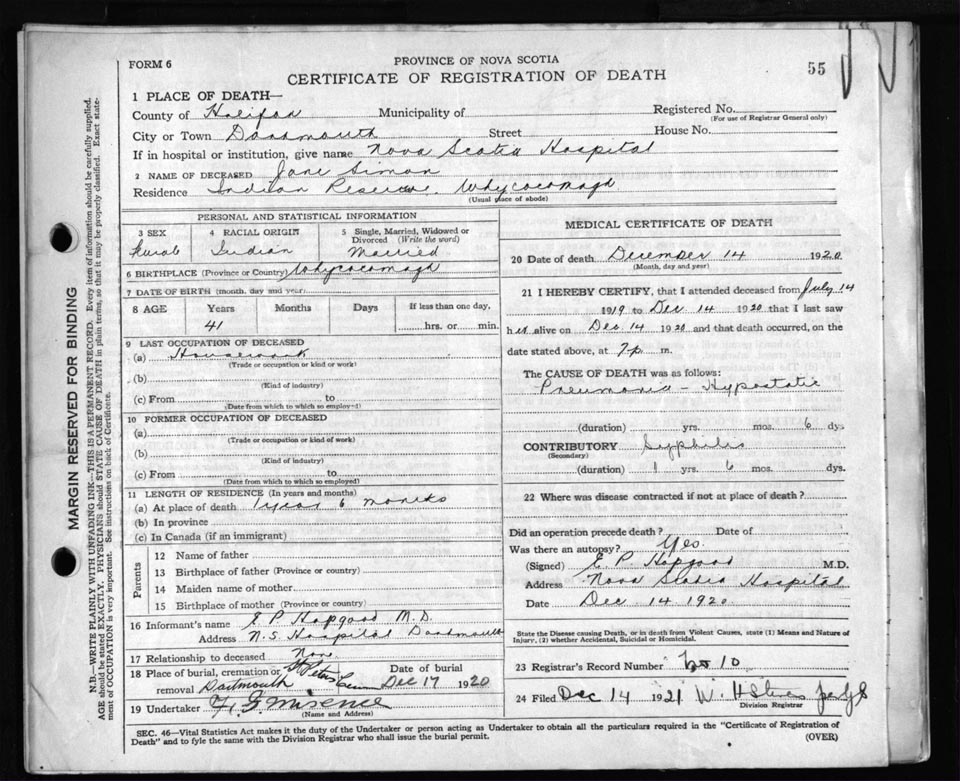 FORM 6
PROVINCE OF NOVA SCOTIA
CERTIFICATE OF REGISTRATION OF DEATH
55
1 PLACE OF DEATH—
County of Halifax Municipality of
Registered No.
(For use of Registrar General only)
City or Town Dartmouth Street House No.
If in hospital or institution, give name Nova Scotia Hospital
2 NAME OF DECEASED Jane Simon
Residence Indian Reserve, Whycocomagh
(Usual place of abode)
PERSONAL AND STATISTICAL INFORMATION
3 SEX
4 RACIAL ORIGIN Indian
5 Single, Married, Widowed or Divorced (Write the word) Married
6 BIRTHPLACE (Province or Country) Whycocomagh
7 DATE OF BIRTH (month, day and year)
8 AGE Years Months Days If less than one day,
41 hrs. or min.
9 LAST OCCUPATION OF DECEASED
(a) Housework
(Trade or occupation or kind or work)
(b)
(Kind of industry)
(c) From to
(Date from which to which so employed)
10 FORMER OCCUPATION OF DECEASED
(a)
(Trade or occupation or kind of work)
(b)
(Kind of industry)
(c) From to
(Date from which to which so employed)
11 LENGTH OF RESIDENCE (In years and months)
(a) At place of death 1 year 6 months
(b) In province
(c) In Canada (if an immigrant)
Parents
12 Name of father
13 Birthplace of father (Province or country)
14 Maiden name of mother
15 Birthplace of mother (Province or country)
16 Informant's name E P Hopgood M.D.
Address N.S. Hospital Dartmouth
17 Relationship to deceased Non
18 Place of burial, cremation or removal St Peters Cem Dartmouth
Date of burial Dec 17 1920
19 Undertaker
(Name and Address)
MEDICAL CERTIFICATE OF DEATH
20 Date of death December 14 1920
(Month, day and year)
21 I HEREBY CERTIFY, that I attended deceased from July 14
1919 to Dec 14 1920 that I last saw
her alive on Dec 14 1920 and that death occurred, on the
date stated above, at 7 p m.
The CAUSE OF DEATH was as follows:
Pneumonia - Hypostatic
(duration) yrs. mos. 6 dys
CONTRIBUTORY Syphilis
(Secondary)
(duration) 1 yrs. 6 mos. dys.
22 Where was disease contracted if not at place of death?
Did an operation precede death? Date of
Was there an autopsy? Yes.
(Signed) E. P. Hopgood M.D.
Address Nova Scotia Hospital
Date Dec 14 1920
State the Disease causing Death, or in death from Violent Causes, state (1) Means and Nature of
Injury, (2) whether Accidental, Suicidal or Homicidal.
23 Registrar's Record Number 10
24 Filed Dec 14 1921
Division Registrar
SEC. 46—Vital Statistics Act makes it the duty of the Undertaker or person acting as Undertaker to obtain all the particulars required in the "Certificate of Registration of
Death" and to fyle the same with the Division Registrar who shall issue the burial permit.
(OVER)
MARGIN RESERVED FOR BINDING
N.B.—WRITE PLAINLY WITH UNFADING INK—THIS IS A PERMANENT RECORD. Every item of information should be carefully supplied.
AGE should be stated EXACTLY. PHYSICIANS should STATE CAUSE OF DEATH in plain terms, so that it may be properly classified. Exact state-
ment of OCCUPATION is very important. See instructions on back of Certificate.